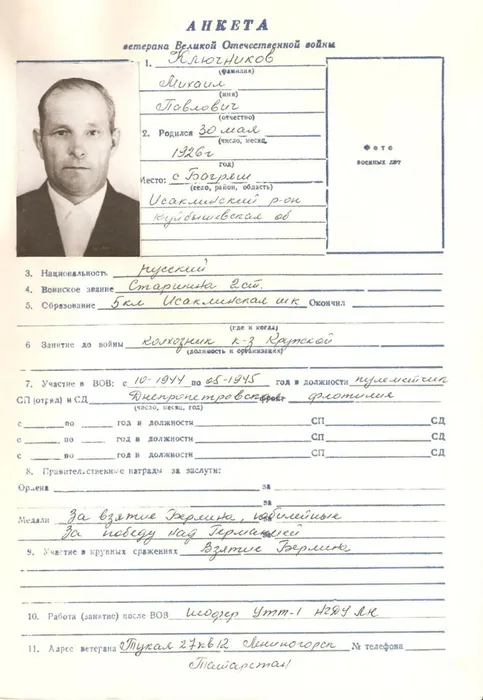 АНКЕТА
ветерана Великой Отечественной войны
1. Ключников
(фамилия)
Михаил
(имя)
Павлович
(отчество)
2. Родился 30 мая
(число, месяц,
1926г
год)
Место: с Багряш
(село, район, область)
Исаклинский р-он
Куйбышевская об
Фото
военных лет
3. Национальность русский
4. Воинское звание Старшина 2 ст.
5. Образование 5 кл Исаклинская шк Окончил
(где и когда)
6 Занятие до войны колхозник к-з Крутской
(должность и организация)
7. Участие в ВОВ: с 10-1944 по 05-1945 год в должности пулеметчик
СП (отряд) и СД Днепропетровская фронт флотилия
(число, месяц, год)
с по год и должности СП СД
с по год и должности СП СД
с по год и должности СП СД
8. Правительственные награды за заслуги:
Ордена за
за
Медали За взятие Берлина, юбилейные
За победу над Германией
9. Участие в крупных сражениях Взятие Берлина
10. Работа (занятие) после ВОВ шофер УТТ-1 НГДУ ЛН
11. Адрес ветерана Тукая 27 кв 12 Лениногорск № телефона
Татарстан